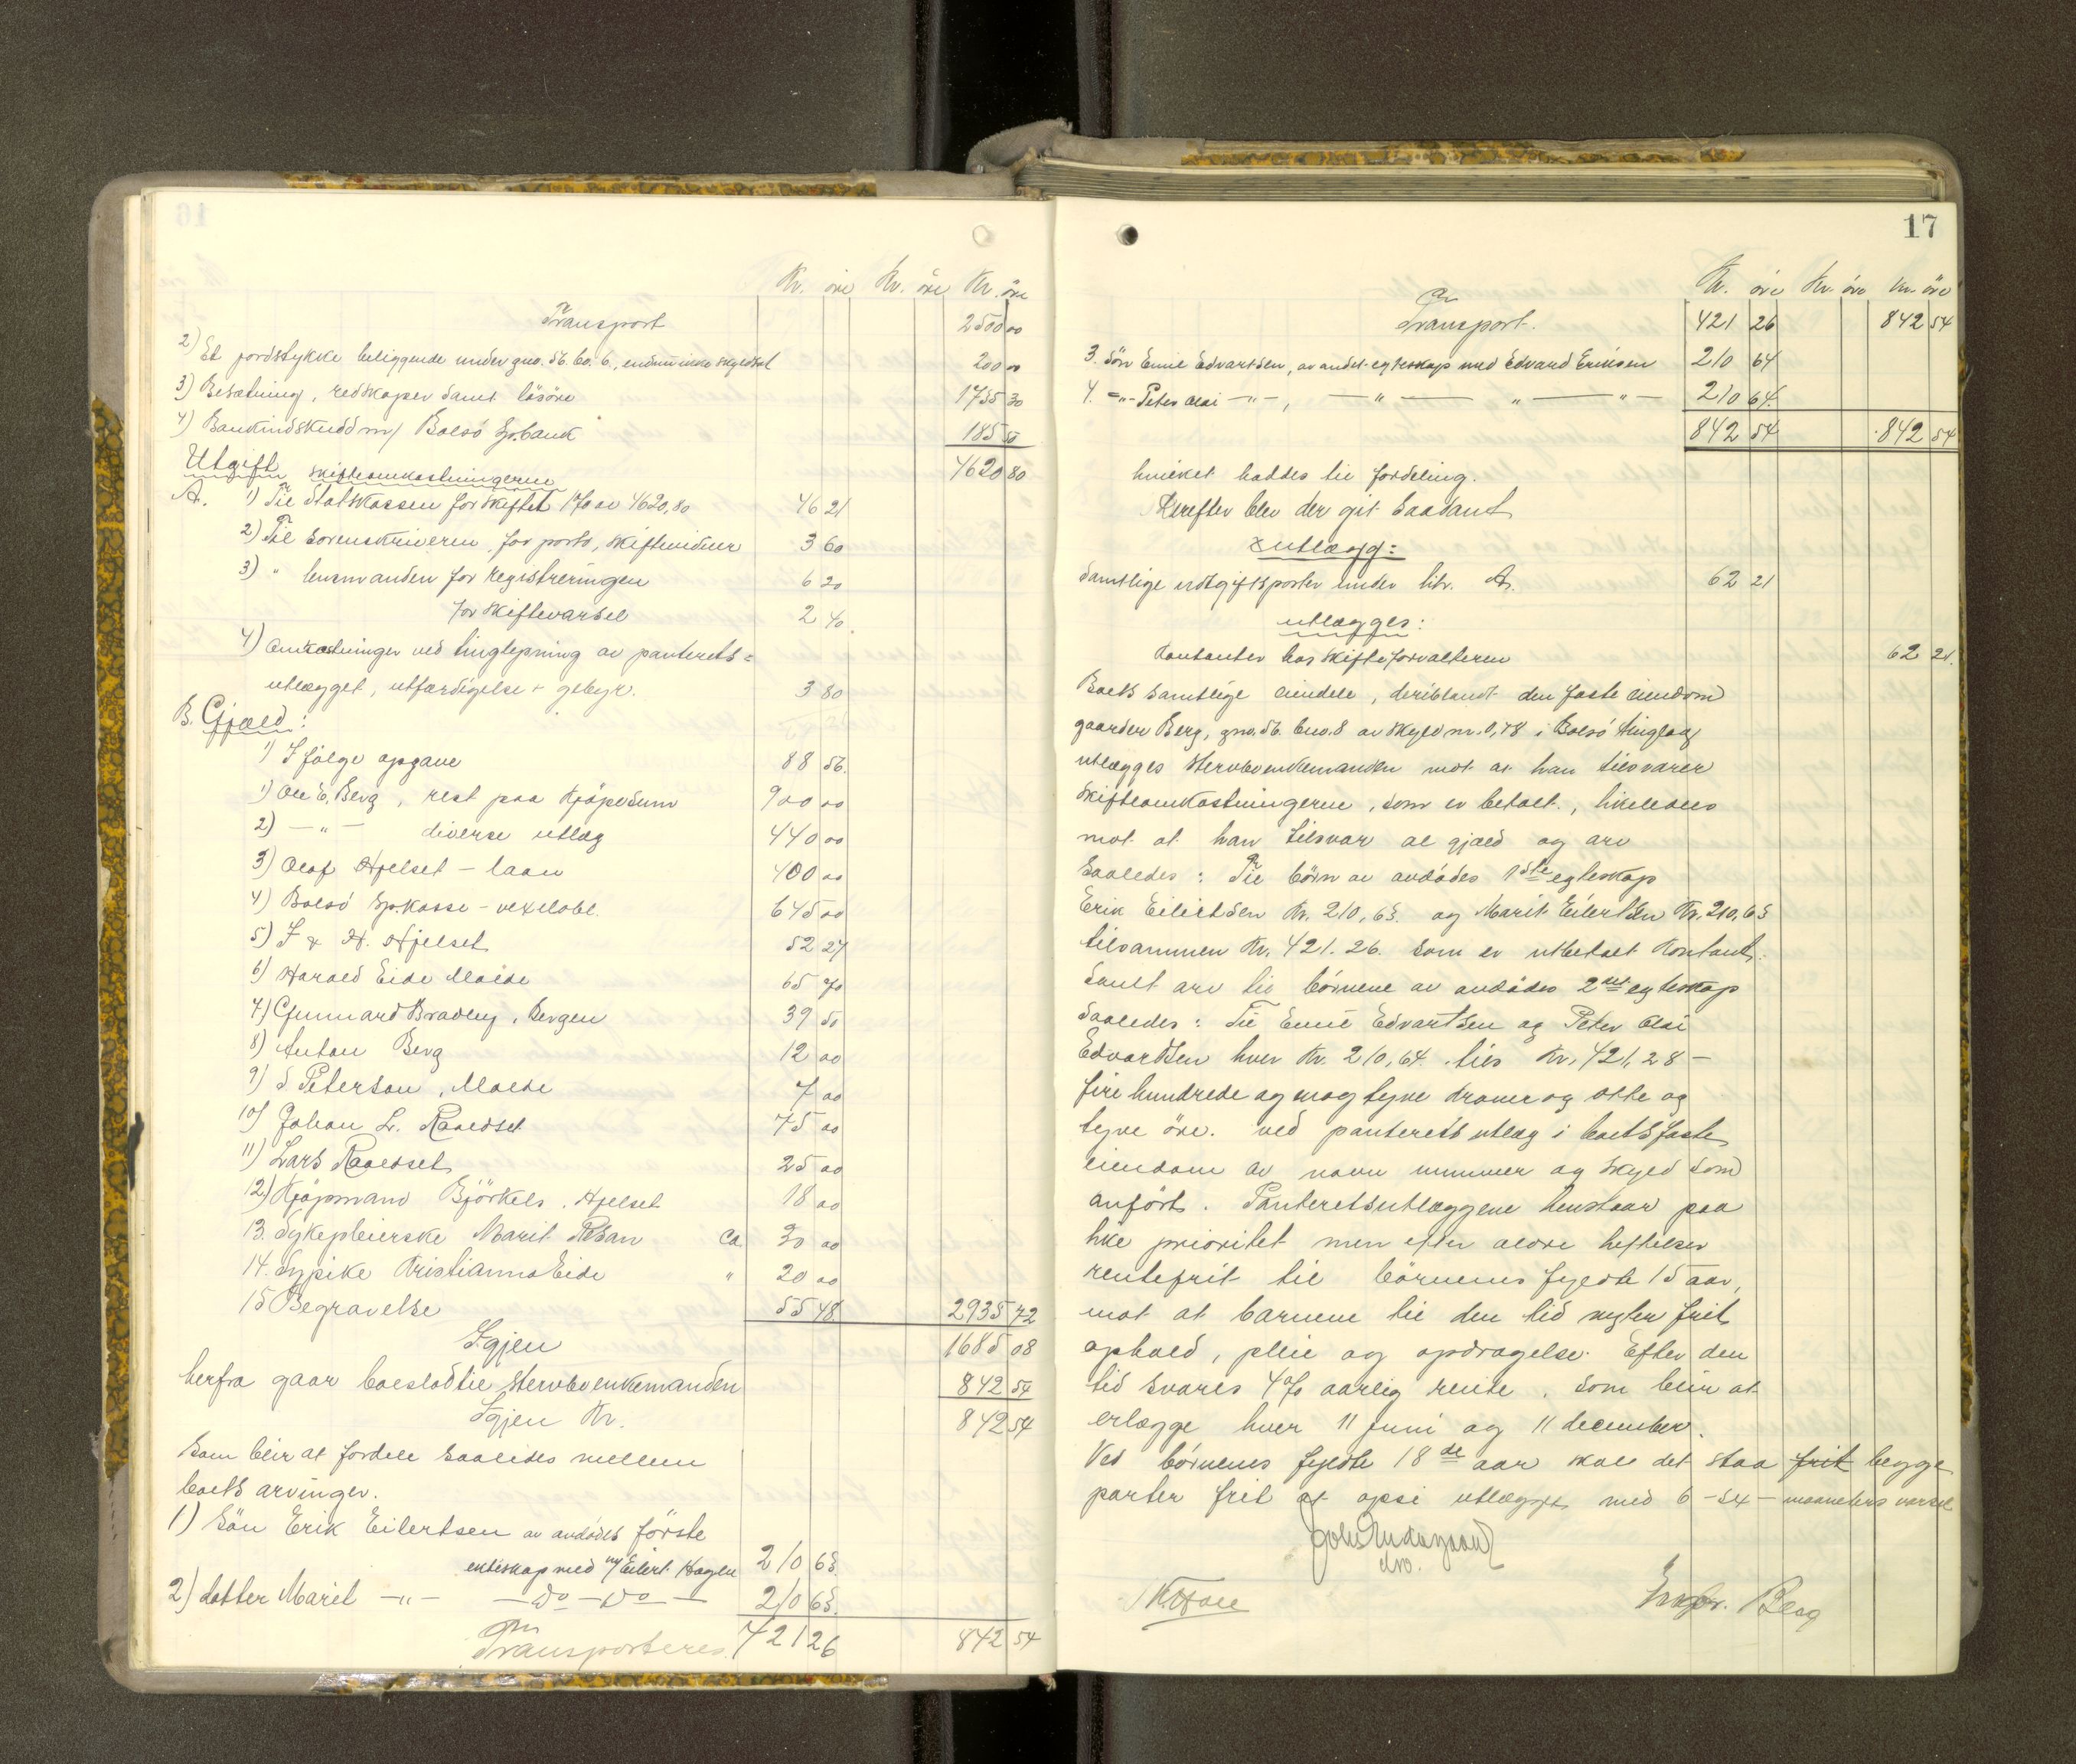 Kr. öre Kr. öre Kr. öre
Transport 2500 00
2) Et jordstykke beliggende under gno. 56. bo. 6., endnu ikke skyldsat 200 00
3) Besætning, redskaper samt lösöre 1735 30
4) Bankindskudd m/ Bolsö Sp.bank 185 50
Utgift 4620 80
skifteomkostningerne
A. 1) Til Statskassen for skiftet 1% av 4620,80 46 21
2) Til Sorenskriveren, for porto, skiftevidner 3 60
3) " lensmanden for Registreringen 6 20
for skiftevarsel 2 40
4) Omkostninger ved tinglysning av panterets=
utlægget, utfærdigelse + gebyr. 3 80
B. Gjæld:
1) I følge opgave 88 56.
1) Ole E. Berg, rest paa Kjøpesum 900 00
2) —"— diverse utlæg 440 00
3) Olaf Hjelset – laan 400 00
4) Bolsö Sp.kasse – vexelobl. 645 00
5) I & H. Hjelset 52 27
6) Harald Eide Molde 65 70
7) Gunnard Bradley, Bergen 39 50
8) Anton Berg 12 00
9) S Peterson, Molde 7 00
10) Johan L. Raaedset 75 00
11) Lars Raaedset 25 00
12) Kjöpmand Björkels. Hjelset 18 00
13. Sykepleierske Marit Röban ca 30 00
14. Sypike Kristianna Eide " 20 00
15 Begravelse 55 48 2935 72
Igjen 1685 08
herfra gaar boeslod til stervboenkemanden 842 54
Igjen Kr. 842 54
Som blir at fordele saaledes mellem
boets arvinger.
1) Sön Erik Eilertsen av avdödes förste
ekteskap med Eilert Hagen 210 63.
2) datter Marit —"— —Do—Do— 210 63.
Transporteres 421 26 842 54
17
Kr. öre Kr. öre Kr. öre
Transport. 421 26 842 54
3. Sön Emil Edvartsen, av andet egteskap med Edvard Eriksen 210 64
4. —"— Peter Olai —"—, —"— " —"— 210 64.
842 54 842 54
hvilket haddes til fordeling.
Herefter blev der git saadant
utlægg:
Samtlige utgiftsposter under litr. A. 62 21
utlægges:
Kontanter hos skifteforvalteren 62 21.
Boets samtlige eiendele, deriblandt den faste eiendom
gaarden Berg, gno. 56. bno. 8 av skyld m. 0,78 i Bolsö tinglag
utlægges stervboenkemanden mot at han tilsvarer
skifteomkostningerne, som er betalt, likeledes
mot at han tilsvar al gjæld og arv
saaledes: Til börn av avdødes 1ste egteskap
Erik Eilertsen Kr. 210,63. og Marit Eilertsen Kr. 210,63
tilsammen Kr. 421.26. som er utbetalt kontant.
Samt arv til börnene av avdødes 2net egteskap
saaledes: Til Emil Edvartsen og Peter Olai
Edvardsen hver Kr. 210,64. tils Kr. 421,28 –
fire hundrede og enogtyve kroner og otte og
tyve öre. ved panteretsutlæg i boets faste
eiendom av navn nummer og skyld som
anført. Panteretsutlæggene henstaar paa
like prioritet men efter ældre heftelser
rentefrit til börnenes fyldte 15 aar,
mot at barnene til den tid nyter frit
ophold, pleie og opdragelse. Efter den
tid svares 4% aarlig rente, som blir at
erlægge hver 11 juni og 11 december.
Ved börnenes fyldte 18de aar skal det staa frit begge
parter frit at opsi utlægget med 6 –sex– maaneders varsel
Berg